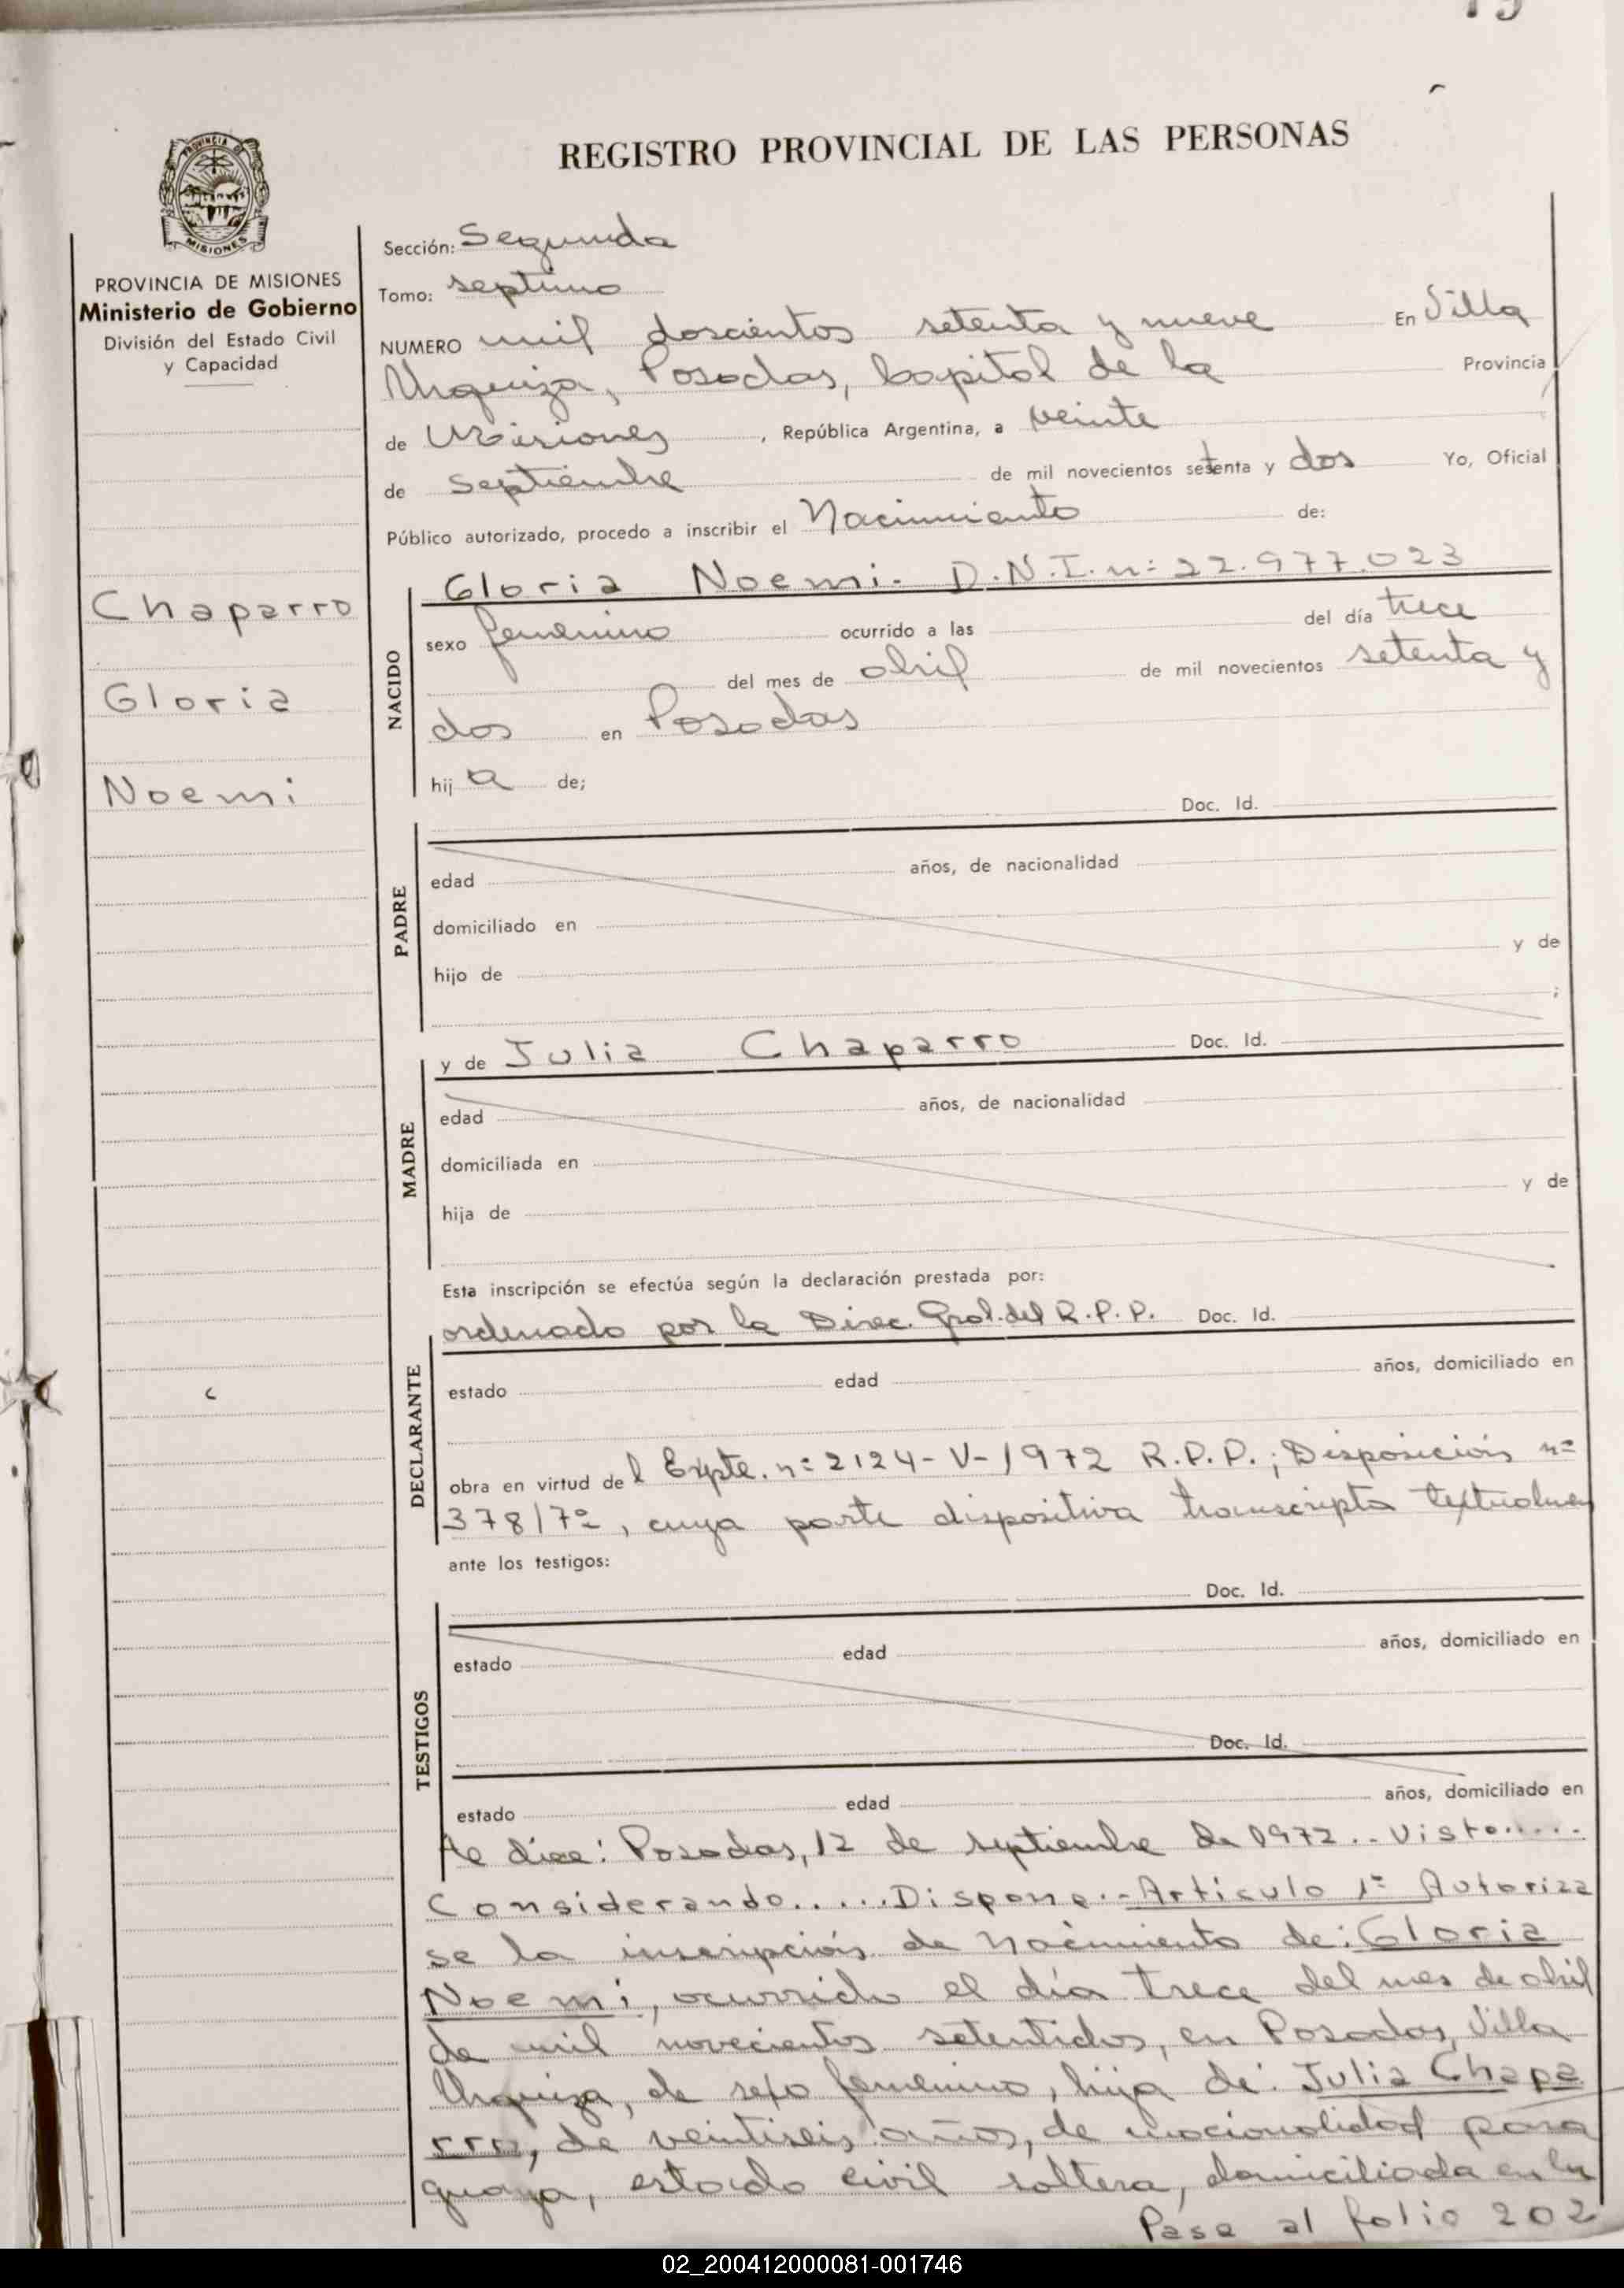 REGISTRO PROVINCIAL DE LAS PERSONAS
PROVINCIA DE MISIONES
PROVINCIA DE MISIONES
Ministerio de Gobierno
División del Estado Civil
y Capacidad
Chaparro
Gloria
Noemi
Sección: Segunda
Tomo: septimo
NUMERO mil doscientos setenta y nueve En Villa
Urquiza, Posadas, Capital de la Provincia
de Misiones, República Argentina, a veinte
de Septiembre de mil novecientos setenta y dos Yo, Oficial
Público autorizado, procedo a inscribir el Nacimiento de:
NACIDO
Gloria Noemi. D.N.I. nº 22.977.023
sexo femenino ocurrido a las del día trece
del mes de abril de mil novecientos setenta y
dos en Posadas
hij a de;
PADRE
Doc. Id.
edad años, de nacionalidad
domiciliado en
hijo de y de
;
MADRE
y de Julia Chaparro Doc. Id.
edad años, de nacionalidad
domiciliada en
hija de y de
Esta inscripción se efectúa según la declaración prestada por:
DECLARANTE
ordenado por la Direc. Gral. del R.P.P. Doc. Id.
estado edad años, domiciliado en
obra en virtud del Expte. nº 2124-V-1972 R.P.P.; Disposición nº
378/72, cuya parte dispositiva transcripta textualmen
ante los testigos:
TESTIGOS
Doc. Id.
estado edad años, domiciliado en
Doc. Id.
estado edad años, domiciliado en
te dice: Posadas, 12 de septiembre de 1972.. Visto.....
Considerando.....Dispone.- Artículo 1º Autoriza
se la inscripción de nacimiento de: Gloria
Noemi, ocurrido el día trece del mes de abril
de mil novecientos setentidos, en Posadas, Villa
Urquiza, de sexo femenino, hija de: Julia Chapa
rro, de veintiseis años, de nacionalidad para
guaya, estado civil soltera, domiciliada en la
Pasa al folio 202
02_200412000081-001746